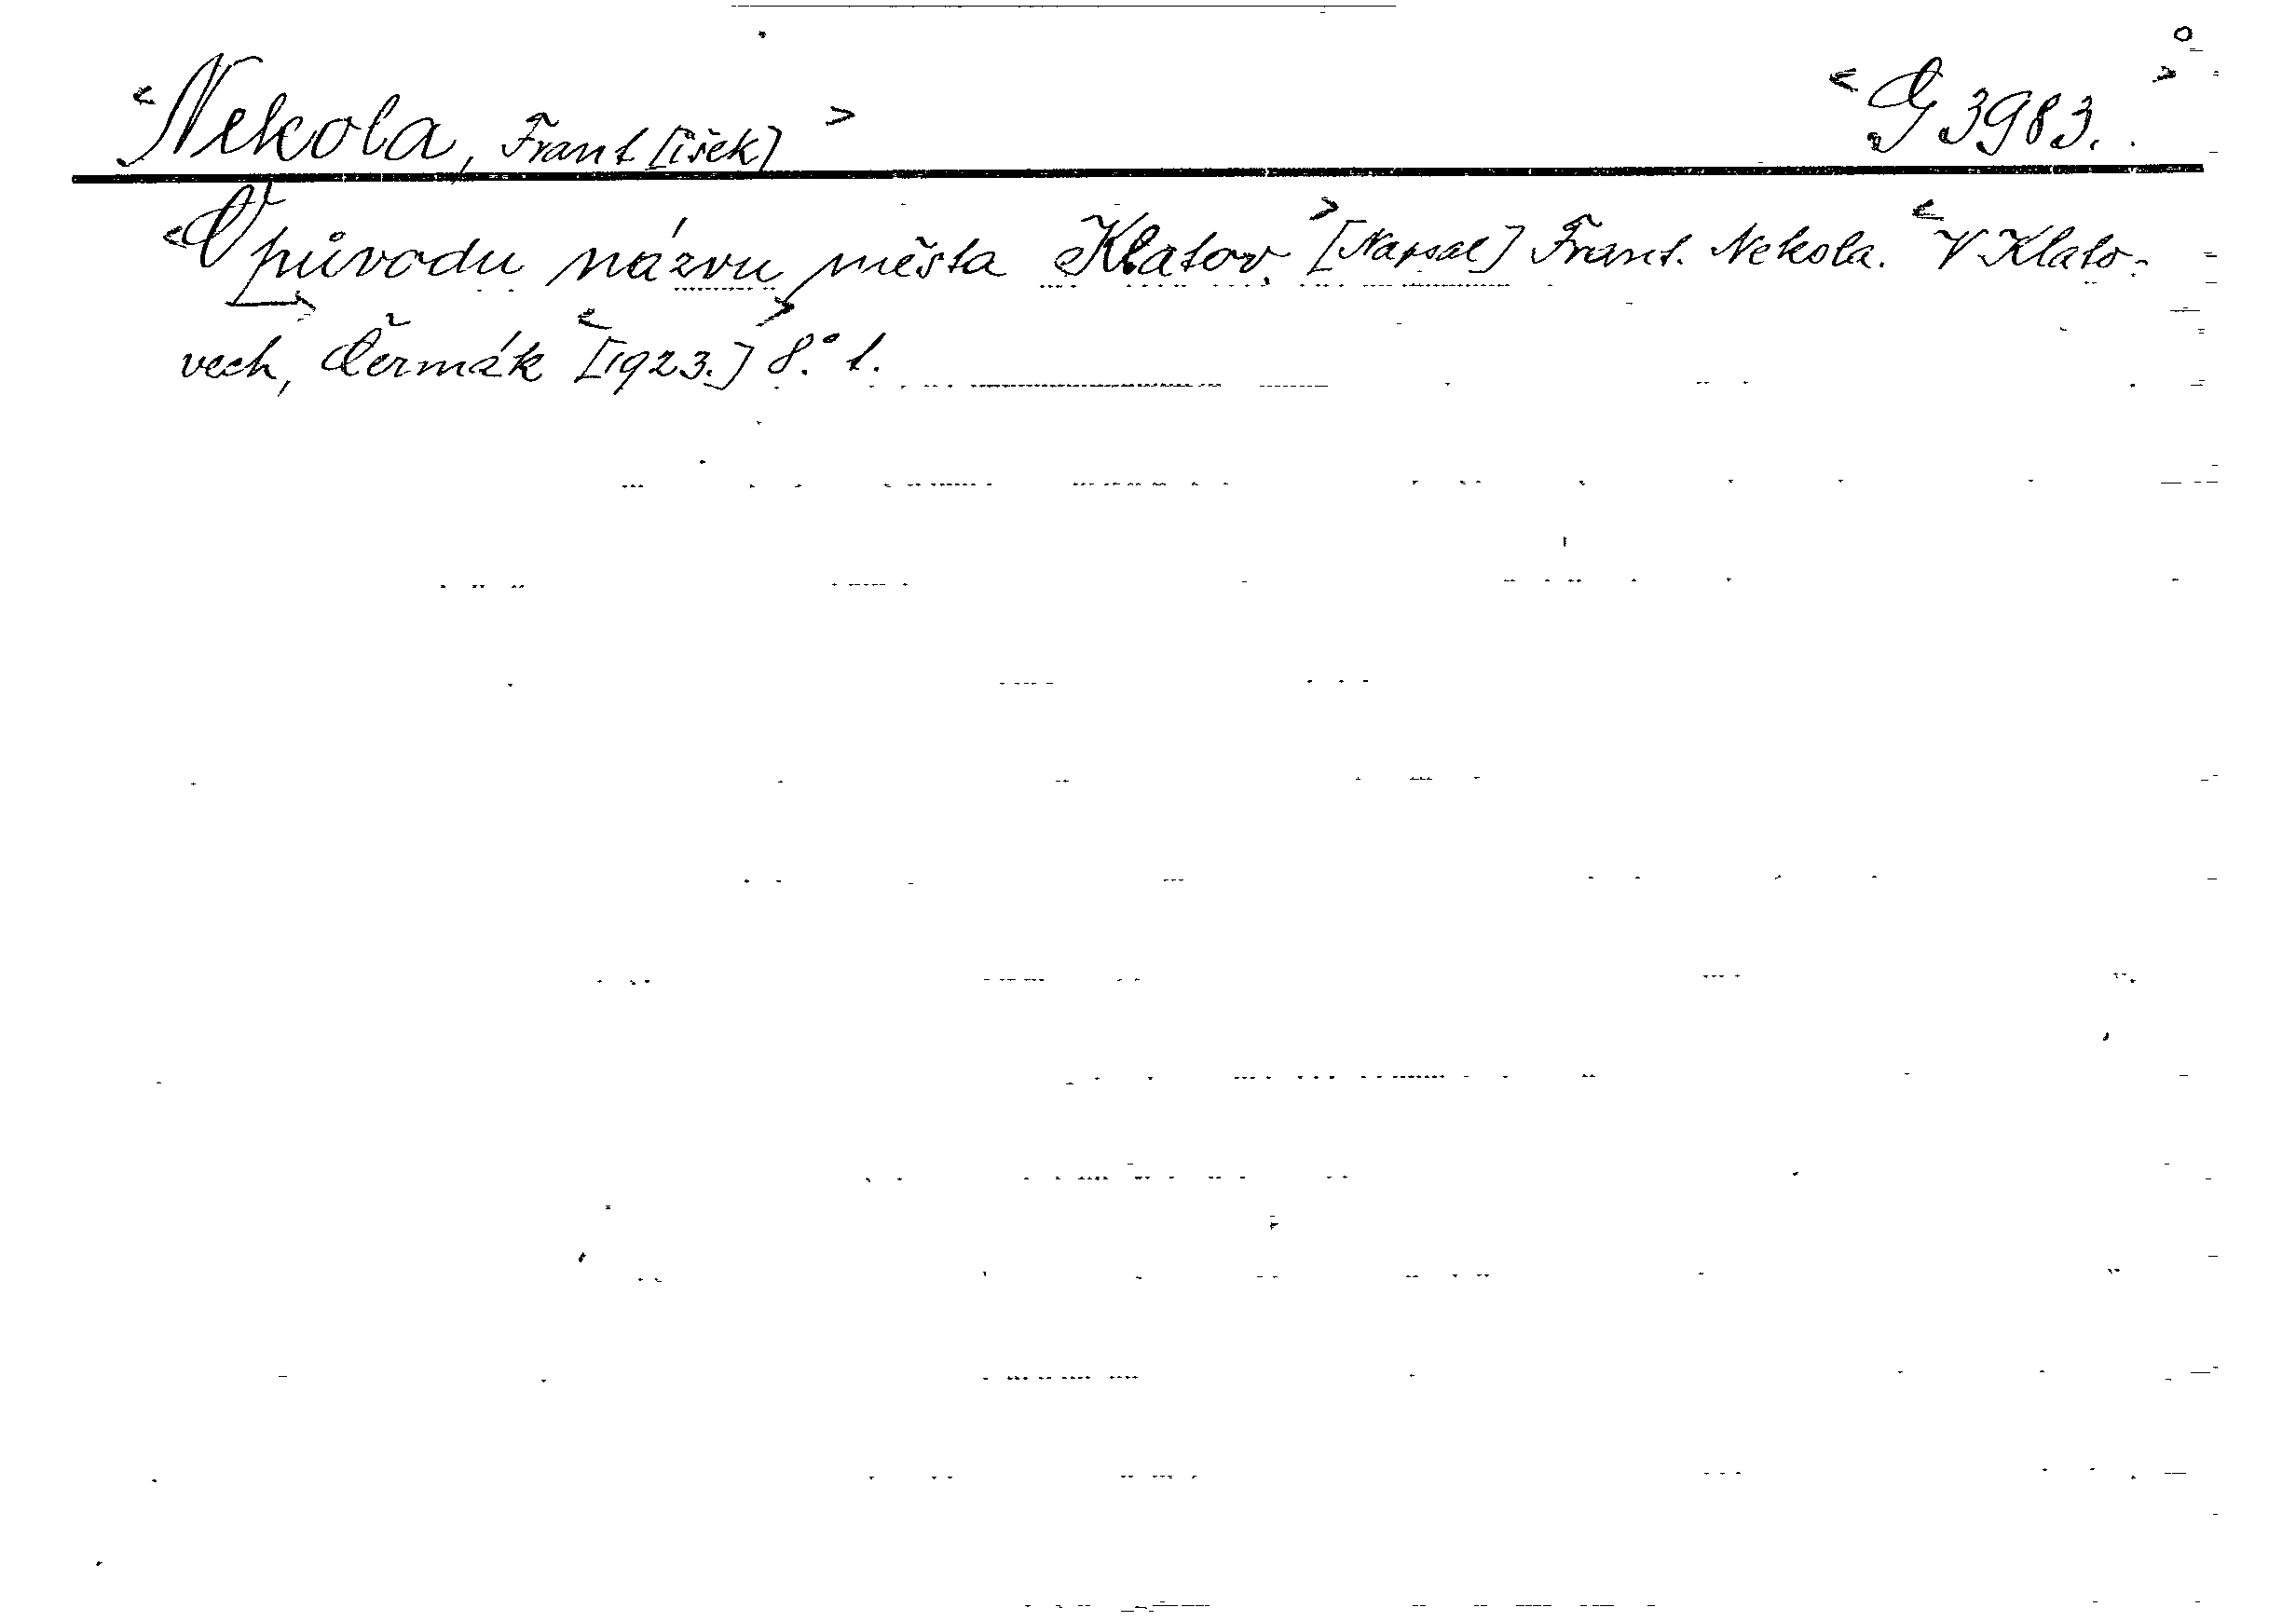 <Nekola, Frant[išek]> <G 3983.>
<O původu názvu města Klatov.> [Napsal] Frant. Nekola. <V Klato-
vech, Čermák <[1923.]> 8.° 1.